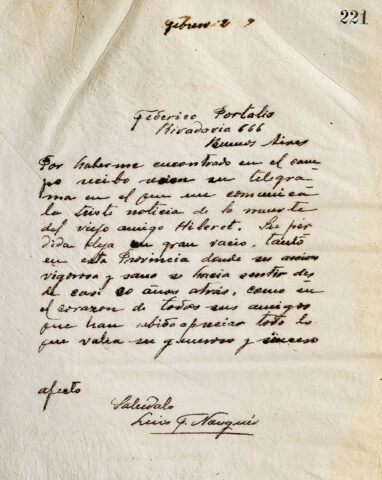 221
Febrero 2 9
Federico Portalis
Rivadavia 666
Buenos Aires
Por haberme encontrado en el cam
po recibo recien su telegra
ma en el que me comunica
la triste noticia de la muerte
del viejo amigo Hileret. Su per
dida deja un gran vacio, tanto
en esta Provincia donde su accion
vigorosa y sana se hacia sentir des
de casi 20 años atrás, como en
el corazon de todos sus amigos
que han sabido apreciar todo lo
que valia su generoso y sincero
afecto
Saludalo
Luis F. Nougués